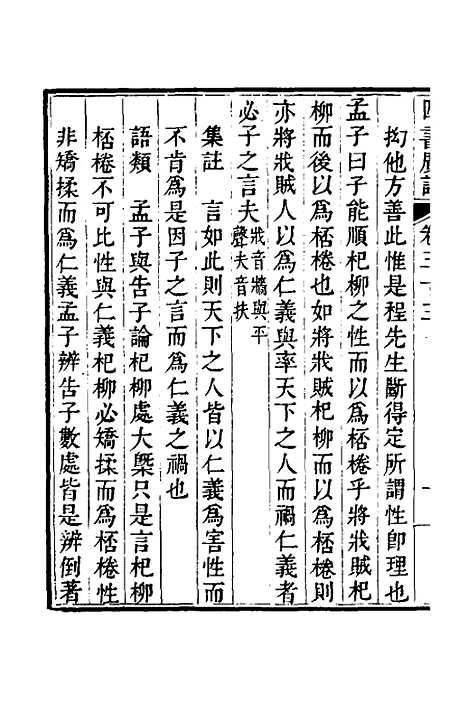 四書
卷三十三
㧓他方善此惟是程先生斷得定所謂性卽理也
孟子曰子能順杞柳之性而以爲桮棬乎將戕賊杞
柳而後以爲桮棬也如將戕賊杞柳而以爲桮棬則
亦將戕賊人以爲仁義與率天下之人而禍仁義者
必子之言夫戕音牆與平
聲夫音扶
集註　言如此則天下之人皆以仁義爲害性而
不肯爲是因子之言而爲仁義之禍也
語類　孟子與告子論杞柳處大槩只是言杞柳
桮棬不可比性與仁義杞柳必矯揉而爲桮棬性
非矯揉而爲仁義孟子辨告子數處皆是辨倒著